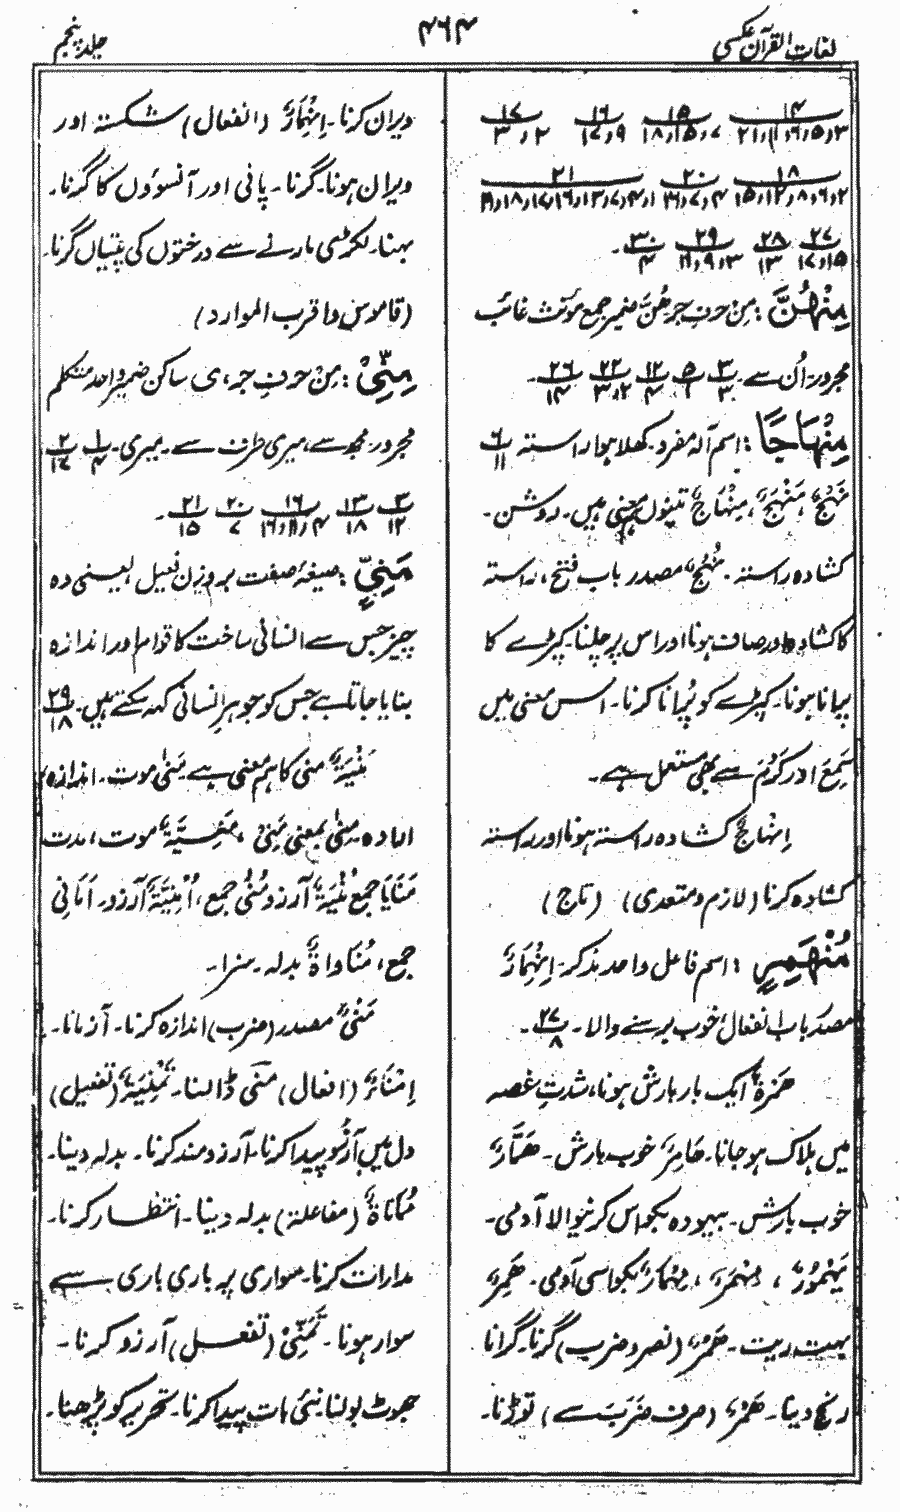 لغات القرآن عکسی
۴۶۴
جلد پنجم
۱۴ ۱۵ ۱۶ ۱۷
۱۸ ۲۰ ۲۱
۲۷ ۲۸ ۲۹ ۳۰
۱۳ ۴
مِنْهُنَّ: مِنْ حرفِ جر هُنَّ ضمیر جمع مؤنث غائب
مجرور۔ اُن سے۔ ۳ ۵ ۱۲ ۲۲ ۲۶
مِنْهَاجًا: اسم آلہ مفرد۔ کھلا ہوا راستہ ۶
۱۱
نَهْجٌ، مَنْهَجٌ، مِنْهَاجٌ تینوں ہم معنی ہیں۔ روشن۔
کشادہ راستہ۔ نَهْجٌ مصدر باب فتح، راستہ
کا کشادہ اور صاف ہونا اور اس پر چلنا۔ کپڑے کا
پرانا ہونا۔ کپڑے کو پُرانا کرنا۔ اس معنی میں
سَمِعَ اور کَرُمَ سے بھی مستعمل ہے۔
اِنْهَاجٌ کشادہ راستہ ہونا اور راستہ
کشادہ کرنا (لازم و متعدی) (تاج)
مُنْهَمِرٍ: اسم فاعل واحد مذکر۔ اِنْهِمَارٌ
مصدر باب انفعال، خوب برسنے والا۔ ۲۷
۸
هَمْرَةٌ ایک بار بارش ہونا، شدتِ غصہ
میں ہلاک ہو جانا۔ هَامِرٌ خوب بارش۔ هَمَّارٌ
خوب بارش۔ بیہودہ بکواس کرنیوالا آدمی۔
یَهْمُوْرٌ، مِهْمَرٌ، مِهْمَارٌ بکواسی آدمی۔ هَمِرٌ
بہت ریت۔ هَمْرٌ (نصر و ضرب) گرنا۔ گرانا
رنج دینا۔ هَمْرٌ (صرف ضَرَبَ سے) توڑنا۔
ویران کرنا۔ اِنْهِمَارٌ (انفعال) شکستہ اور
ویران ہونا۔ گرنا۔ پانی اور آنسوؤں کا گرنا۔
بہنا۔ لکڑی مارنے سے درختوں کی پتیاں گرنا۔
(قاموس و اقرب الموارد)
مِنِّیْ: مِنْ حرفِ جر، ی ساکن ضمیر واحد متکلم
مجرور۔ مجھ سے، میری طرف سے۔ میری۔ ۱ ۲
۴ ۱۷
۳ ۱۳ ۱۶ ۲۰ ۲۱
۱۲ ۱۸ ۷ ۱۵
مَنِیٍّ: صیغۂ صفت بروزن فعیل یعنی وہ
چیز جس سے انسانی ساخت کا قوام اور اندازہ
بنایا جاتا ہے جس کو جوہرِ انسانی کہہ سکتے ہیں۔ ۲۹
۱۸
مَنْیَةٌ منی کا ہم معنی ہے مَنٰی موت۔ اندازہ،
ارادہ۔ مِنیٰ بمعنی مَنِیٌّ، مَنِیَّةٌ موت، مدت
مَنَایَا جمع مُنْیَةٌ آرزو مُنًی جمع، اُمْنِیَّةٌ آرزو۔ اَمَانِی
جمع، مُنَاوَاةٌ بدلہ۔ سزا۔
مَنْیٌ مصدر (ضرب) اندازہ کرنا۔ آزمانا۔
اِمْنَاءٌ (افعال) منی ڈالنا۔ تَمْنِیَةٌ (تفعیل)
دل میں آرزو پیدا کرنا۔ آرزومند کرنا۔ بدلہ دینا۔
مُمَانَاةٌ (مفاعلۃ) بدلہ دینا۔ انتظار کرنا۔
مدارات کرنا۔ سواری پر باری باری سے
سوار ہونا۔ تَمَنِّیْ (تفعل) آرزو کرنا۔
جھوٹ بولنا۔ نئی بات پیدا کرنا۔ تحریر کو پڑھنا۔